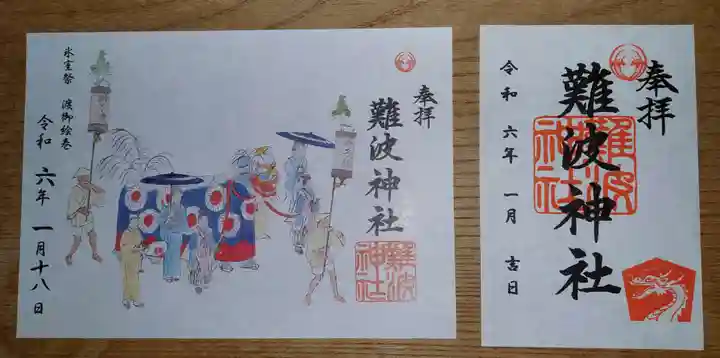 奉拝
難波神社
難波
神社
氷室祭 渡御絵巻
令和 六年 一月十八日
奉拝
難波神社
難波
神社
令和 六年 一月 吉日